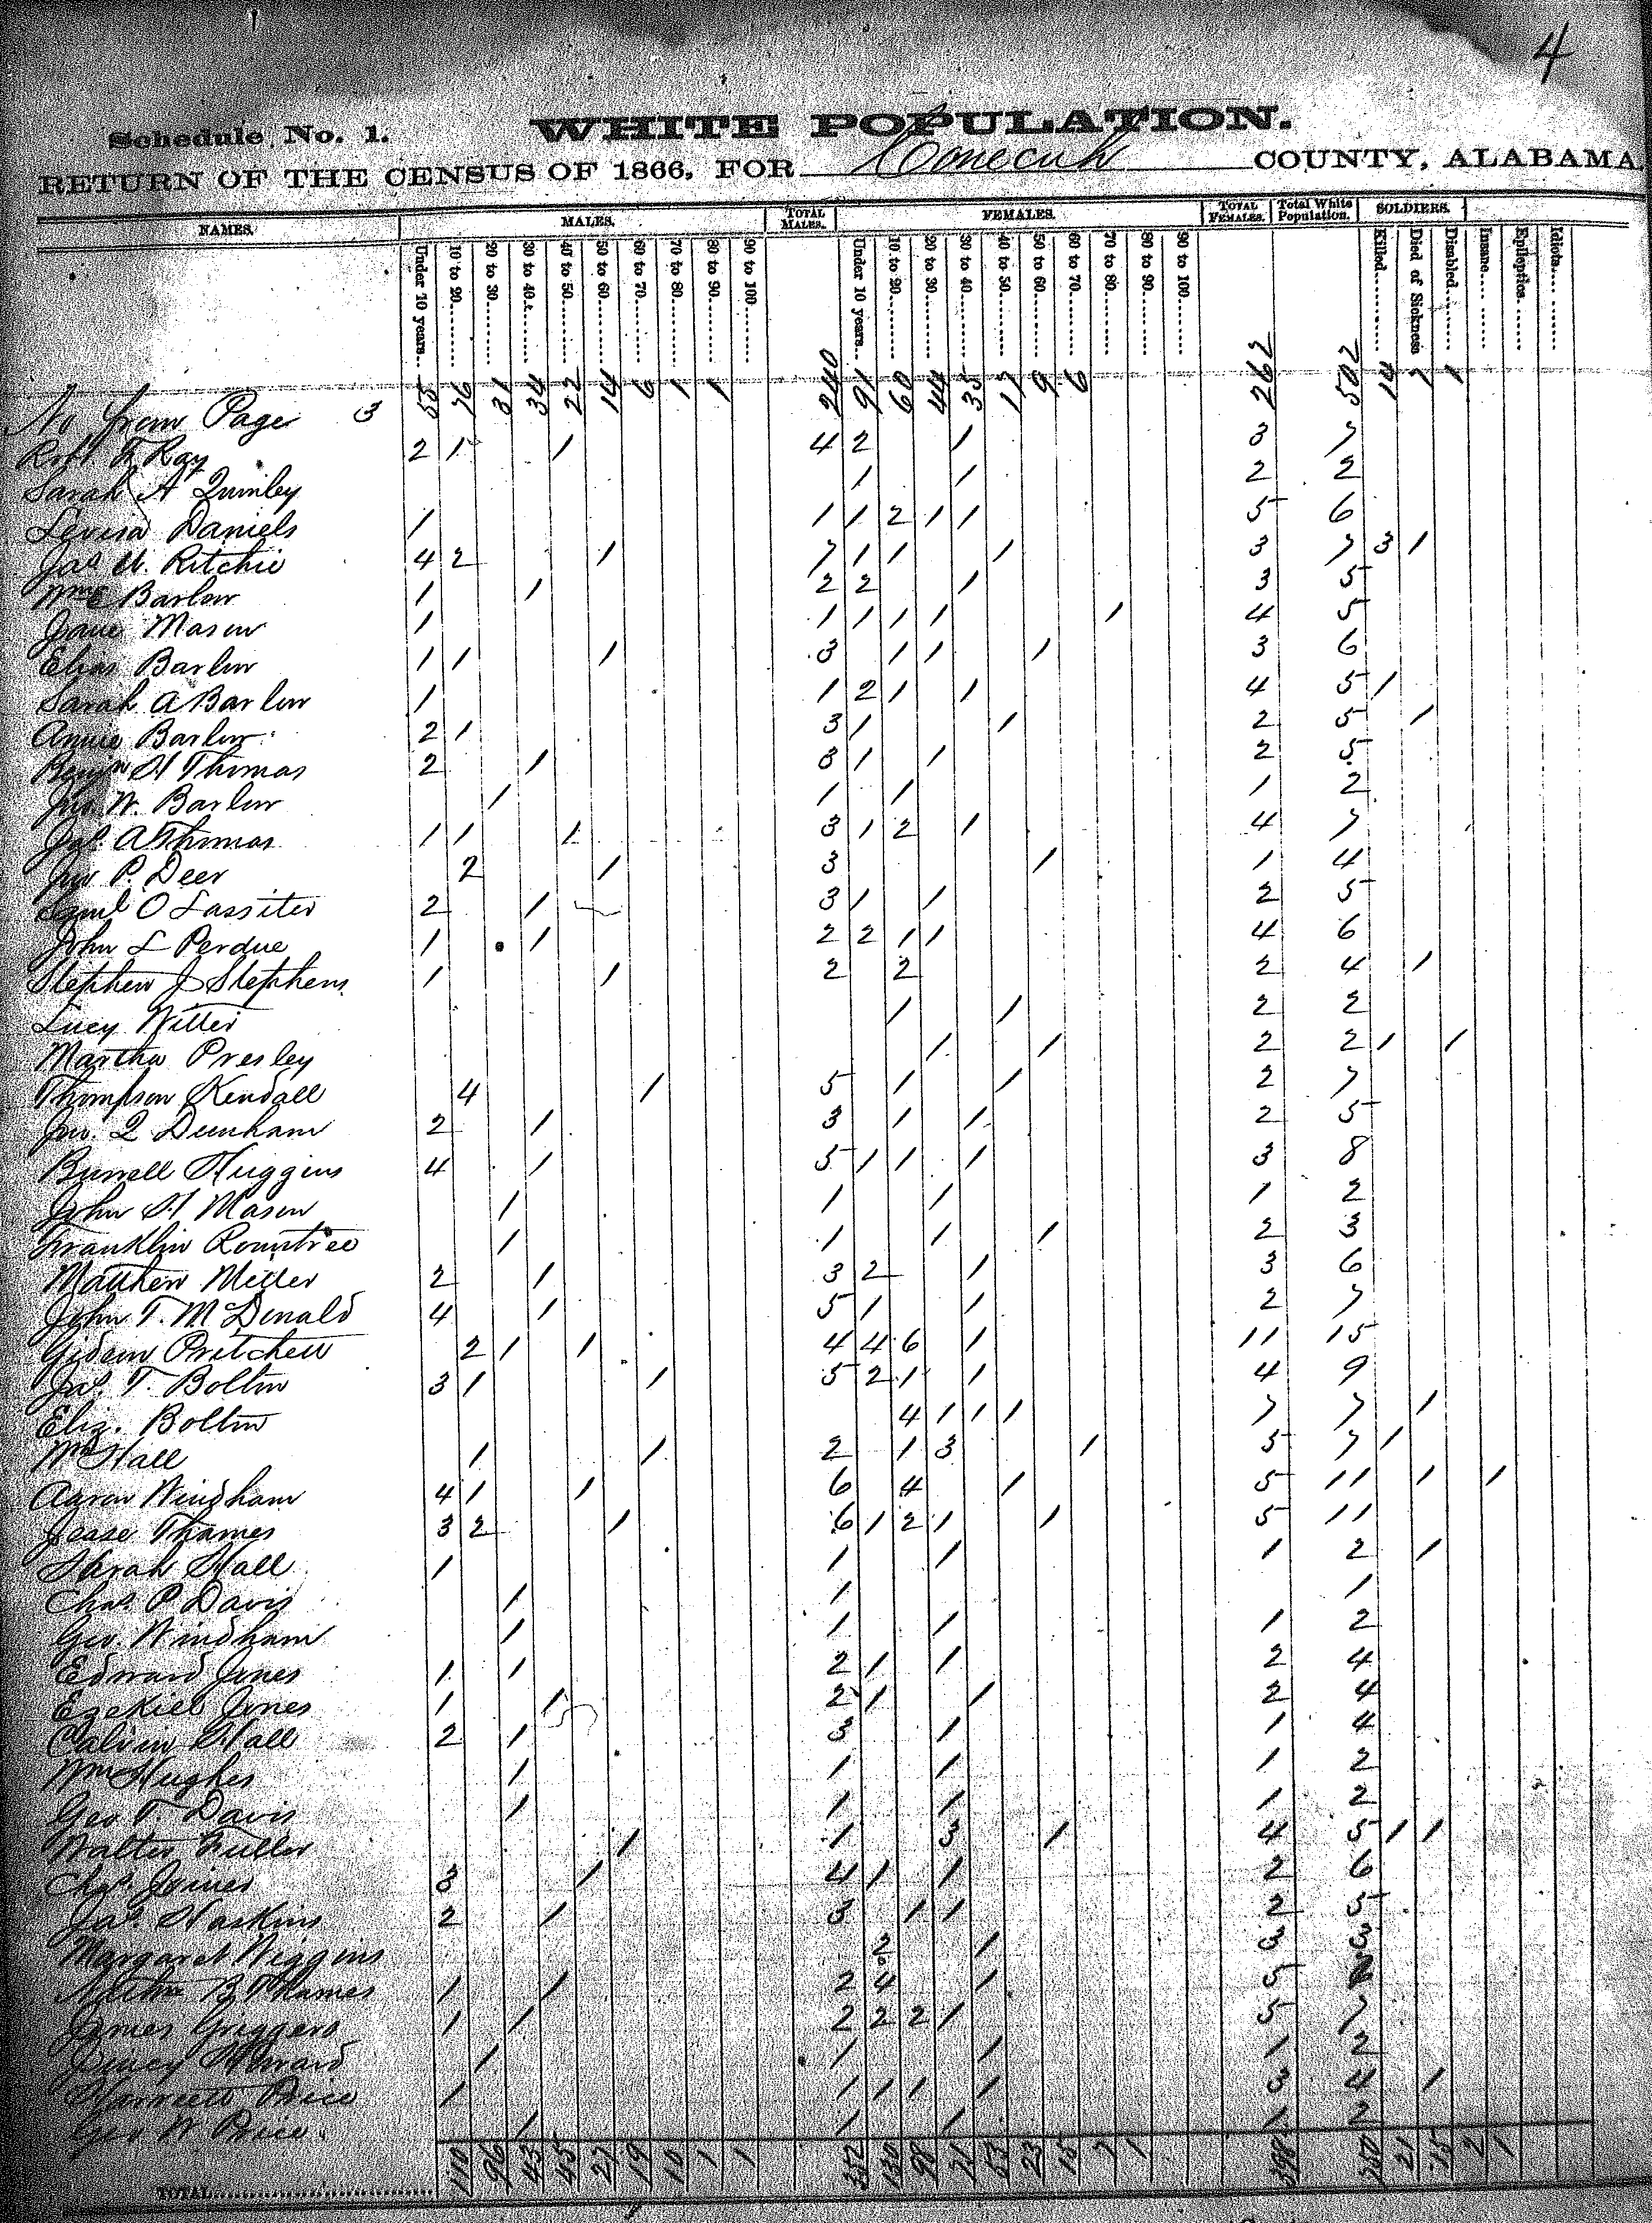 4
Schedule No. 1. WHITE POPULATION.
RETURN OF THE CENSUS OF 1866, FOR Conecuh COUNTY, ALABAMA
NAMES. MALES. TOTAL MALES. FEMALES. TOTAL FEMALES. Total White Population. SOLDIERS.
Under 10 years 10 to 20 20 to 30 30 to 40 40 to 50 50 to 60 60 to 70 70 to 80 80 to 90 90 to 100 Under 10 years 10 to 20 20 to 30 30 to 40 40 to 50 50 to 60 60 to 70 70 to 80 80 to 90 90 to 100 Killed Died of Sickness Disabled Insane Epileptics Idiots
No from Page 3 55 76 31 34 22 14 6 1 1 240 91 60 44 35 17 9 6 262 502 14 7 1
Robt. F. Ray 2 1 1 4 2 1 3 7
Sarah A Quinley 1 1 2 2
Levisa Daniels 1 1 1 2 1 1 5 6
Jas U. Ritchie 4 2 1 7 1 1 1 3 7 3 1
Wm E Barlow 1 1 2 2 1 3 5
Jane Mason 1 1 1 1 1 1 4 5
Elias Barlow 1 1 1 3 1 1 1 3 6
Sarah A Barlow 1 1 2 1 1 4 5 1
Annie Barlow 2 1 3 1 1 2 5 1
Benjn H Thomas 2 1 3 1 1 2 5
Jno. W. Barlow 1 1 1 1 2
Jas. A Thomas 1 1 1 3 1 2 1 4 7
Jno P. Deer 2 1 3 1 1 4
Saml O Lassiter 2 1 3 1 1 2 5
John L Perdue 1 1 2 2 1 1 4 6
Stephen J Stephens 1 1 2 2 2 4 1
Lucy Witter 1 1 2 2
Martha Presley 1 1 2 2 1 1
Thompson Kendall 4 1 5 1 1 2 7
Jno. Q Dunham 2 1 3 1 1 2 5
Burrell Huggins 4 1 5 1 1 1 3 8
John H Mason 1 1 1 1 2
Franklin Rountree 1 1 1 1 2 3
Matthew Miller 2 1 3 2 1 3 6
John T. McDonald 4 1 5 1 1 2 7
Gideon Pritchett 2 1 1 4 4 6 1 11 15
Jas. T. Bolton 3 1 1 5 2 1 1 4 9
Eliz. Bolton 4 1 1 1 7 7 1
Wm Hall 1 1 2 1 3 1 5 7 1
Aaron Windham 4 1 1 6 4 1 5 11 1 1
Jesse Thames 3 2 1 6 1 2 1 1 5 11
Sarah Hall 1 1 1 1 2 1
Chas. P Davis 1 1 1
Geo. Windham 1 1 1 1 2
Edward Jones 1 1 2 1 1 2 4
Ezekiel Jones 1 1 2 1 1 2 4
Calvin Hall 2 1 3 1 1 4
Wm Hughes 1 1 1 1 2
Geo T. Davis 1 1 1 1 2
Walter Fuller 1 1 3 1 4 5 1 1
Chas. Joiner 3 1 4 1 1 2 6
Jas. Haskins 2 1 3 1 1 2 5
Margaret Wiggins 2 1 3 3
B. Thames 1 1 2 4 1 5
James Griggers 1 1 2 2 2 1 5 7
Howard 1 1 1 1 2
Harriett Price 1 1 1 1 1 3 4 1
Geo W Price 1 1 1 1 2
TOTAL 110 96 43 45 27 19 10 1 1 352 130 98 71 53 23 15 7 1 398 750 21 15 2 1